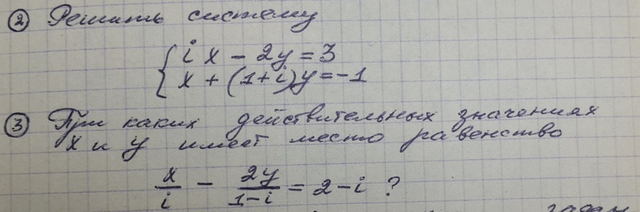 ② Решить систему
{ i x - 2y = 3
x + (1+i)y = -1
③ При каких действительных значениях
x и y имеет место равенство
x/i - 2y/(1-i) = 2-i ?